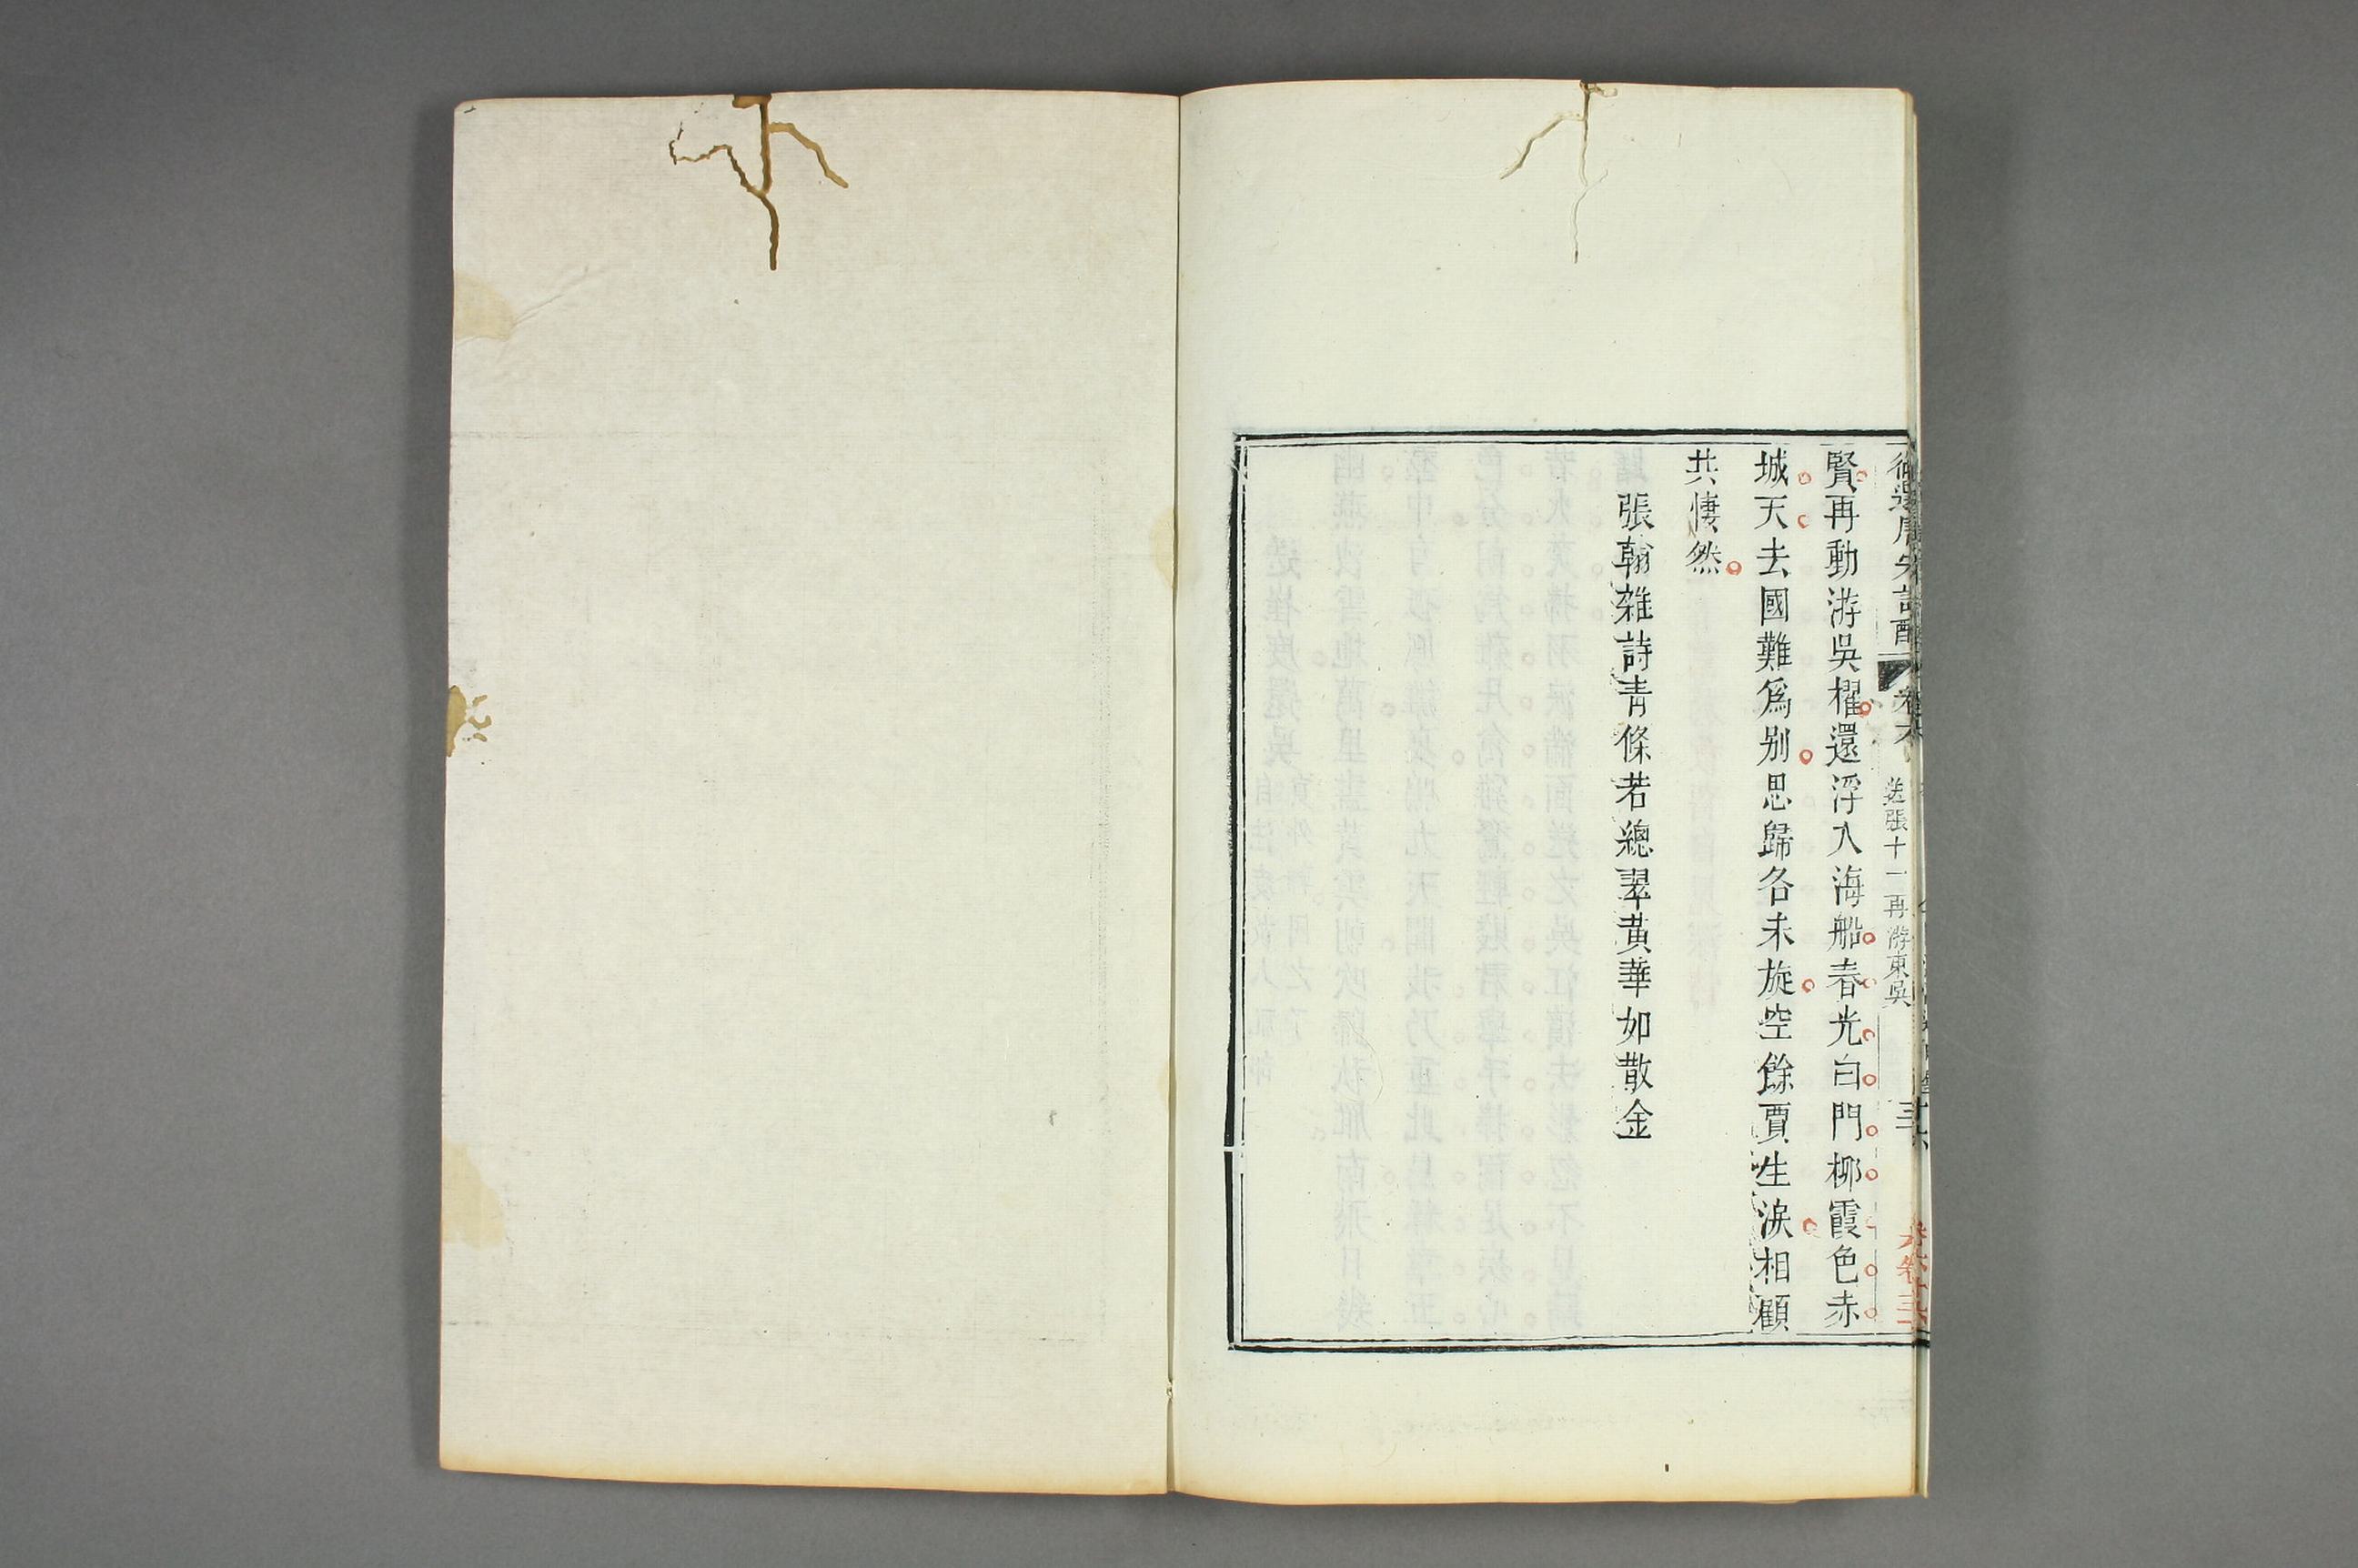 御選唐宋詩醇 卷六 送張十一再游東吳
賢再動游吳櫂還浮入海船春光白門柳霞色赤
城天去國難爲別思歸各未旋空餘賈生淚相顧
共悽然
張翰雜詩青條若總翠黃華如散金